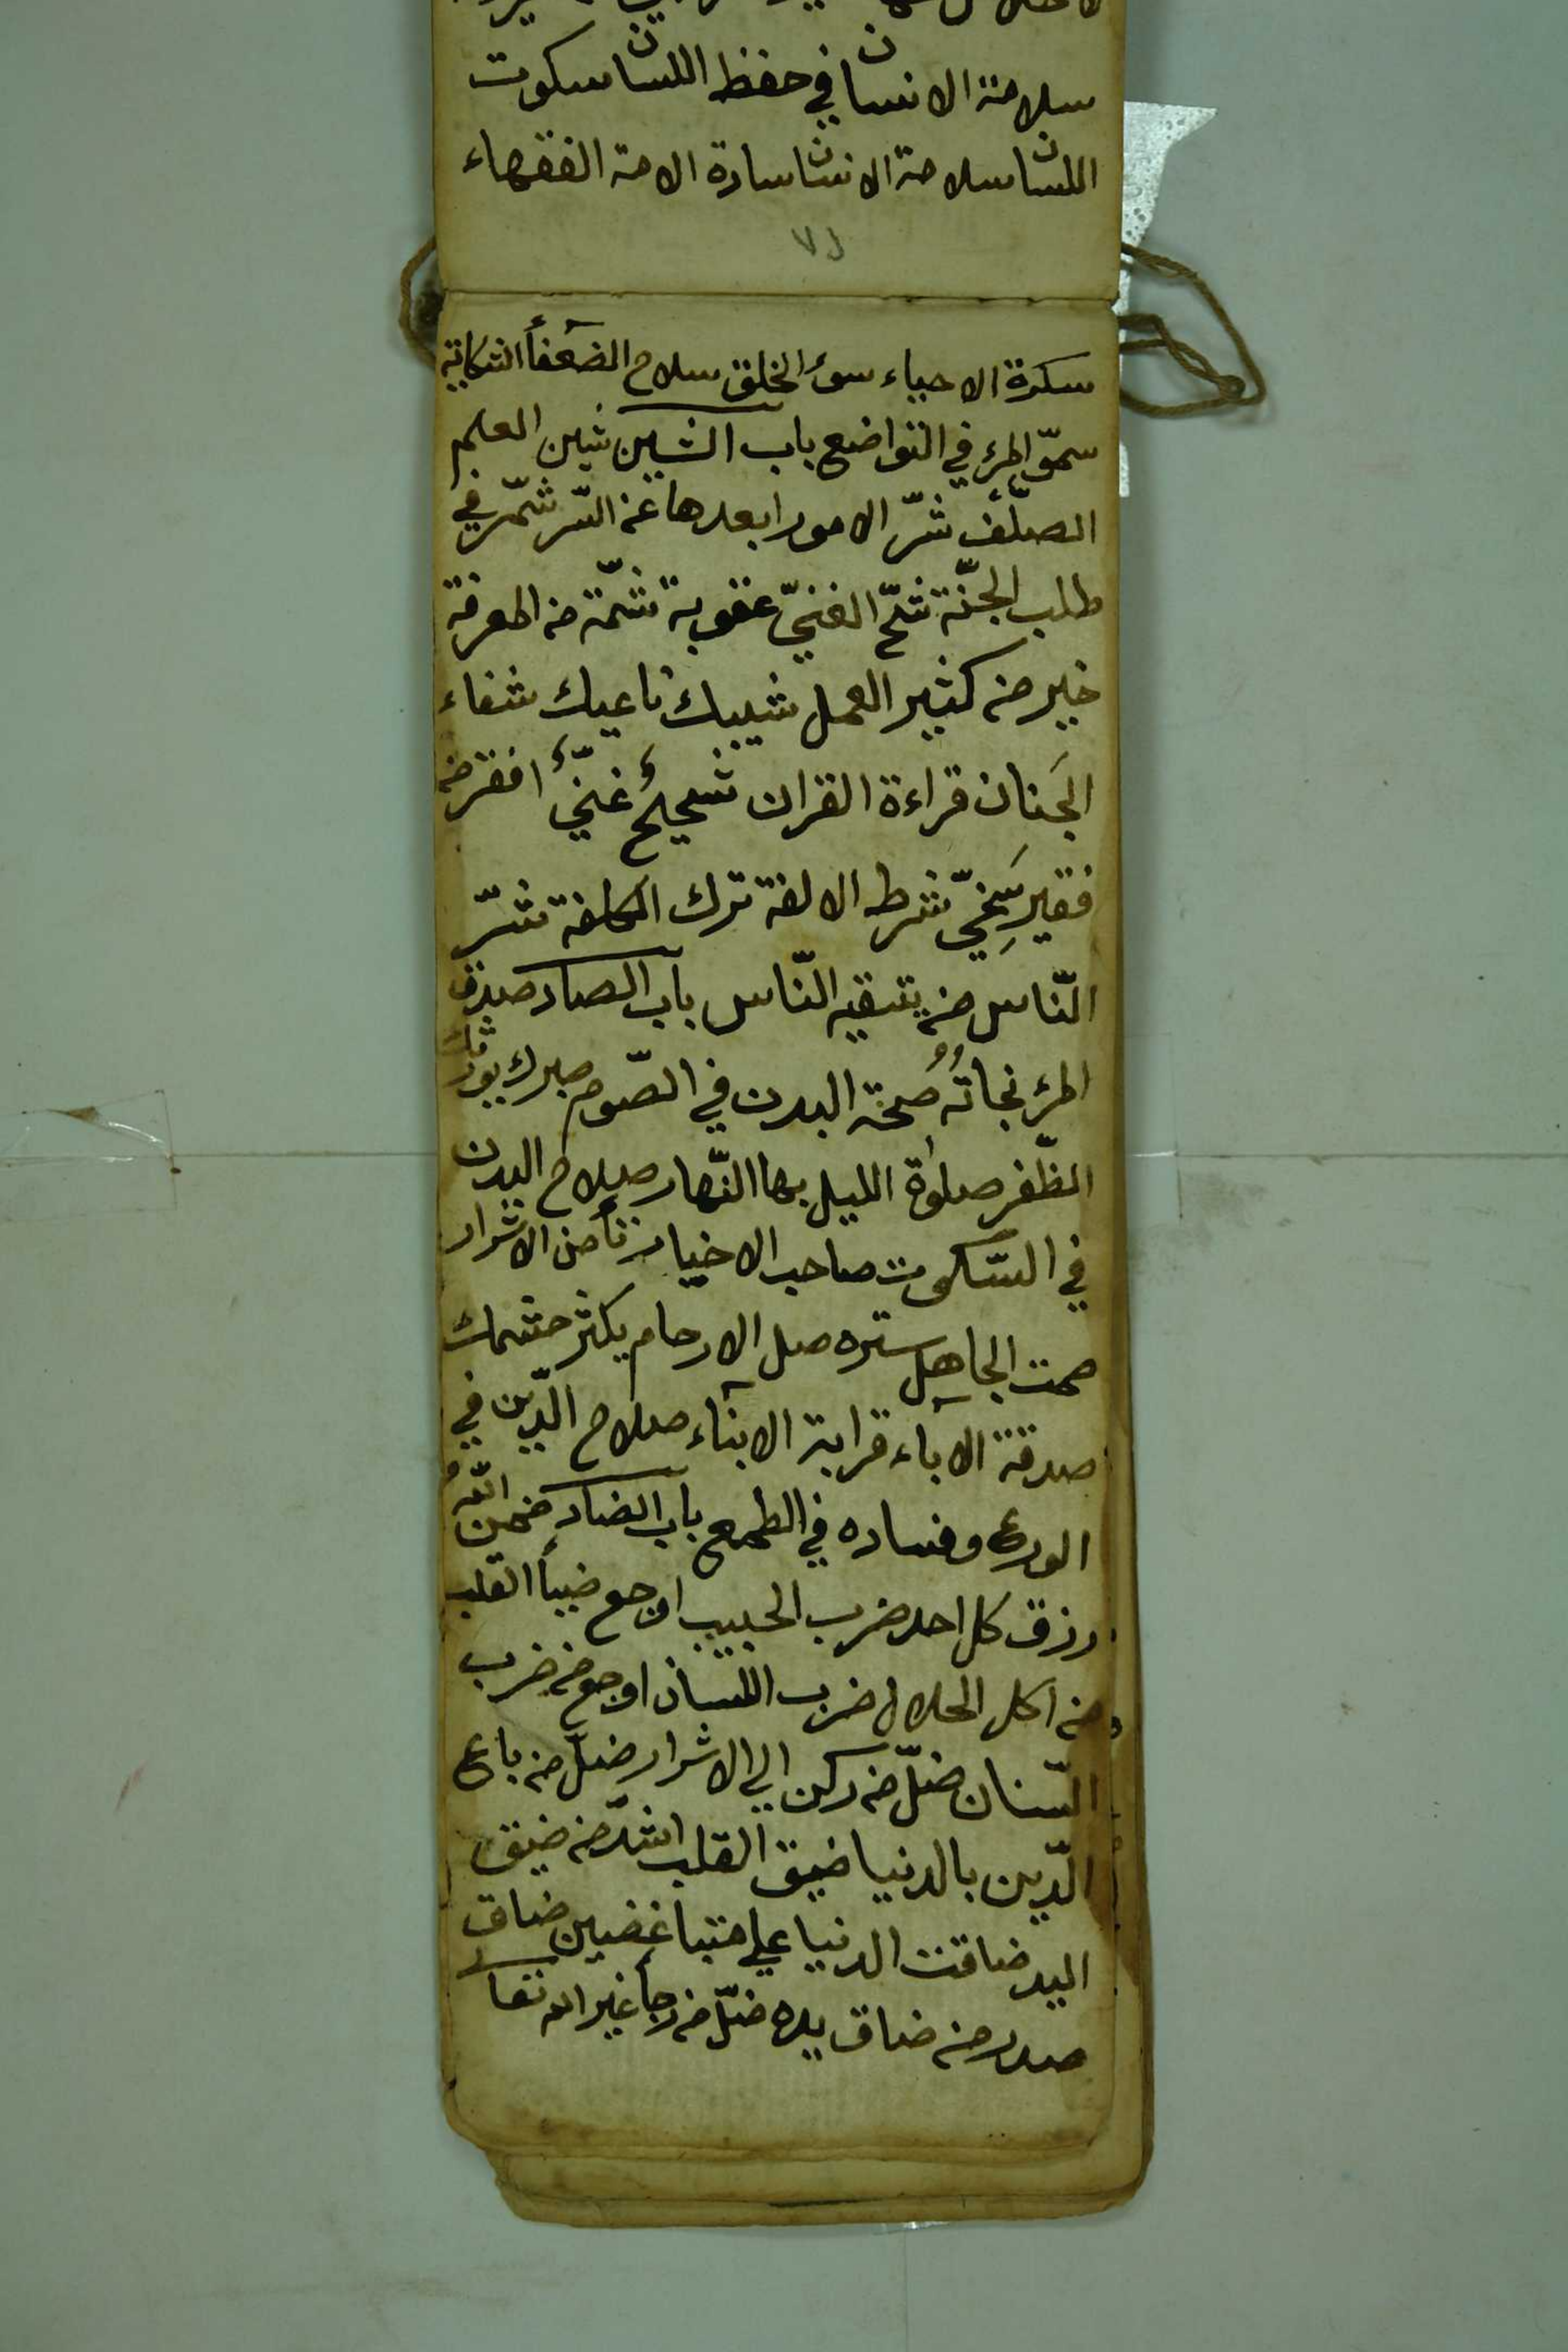 سلامة الانسان في حفظ اللسان سكوت
اللسان سلامة الانسان سادة الامة الفقهاء
سكرة الاحياء سوء الخلق سلاح الضعفآء الشكاية
سموّ المرء في التواضع باب الشين شين العلم
الصلف شرّ الامور ابعدها عن الشر شمّر في
طلب الجنّة شحّ الغنيّ عقوبة شمّة من المعرفة
خير من كثير العمل شيبك ناعيك شفاء
الجَنان قراءة القران شحيح غنيّ افقر من
فقير سَخِيّ شرط الالفة ترك الكلفة شرّ
النّاس من يتقيه النّاس باب الصاد صدق
المرء نجاتُهُ صُحة البدن في الصّوم صبرك يورثك
الظّفر صلوة الليل بها النّهار صلاح البدن
في السّكوت صاحب الاخيار تأمن الاشرار
صمت الجاهل ستره صل الارحام يكثر حشمك
صدقة الآباء قرابة الابنآء صلاح الدّين في
الورع وفساده في الطمع باب الضاد ضمن اللّه
رزق كل احد ضرب الحبيب اوجع ضيأ القلب
من اكل الحلال ضرب اللسان اوجع من ضرب
السّنان ضلّ من ركن الي الاشرار ضلّ من باع
الدّين بالدنيا ضيق القلب اشدّ من ضيق
اليد ضاقت الدنيا علي متباغضين ضاق
صدر من ضاق يده ضلّ من رجأ غير الله تعا